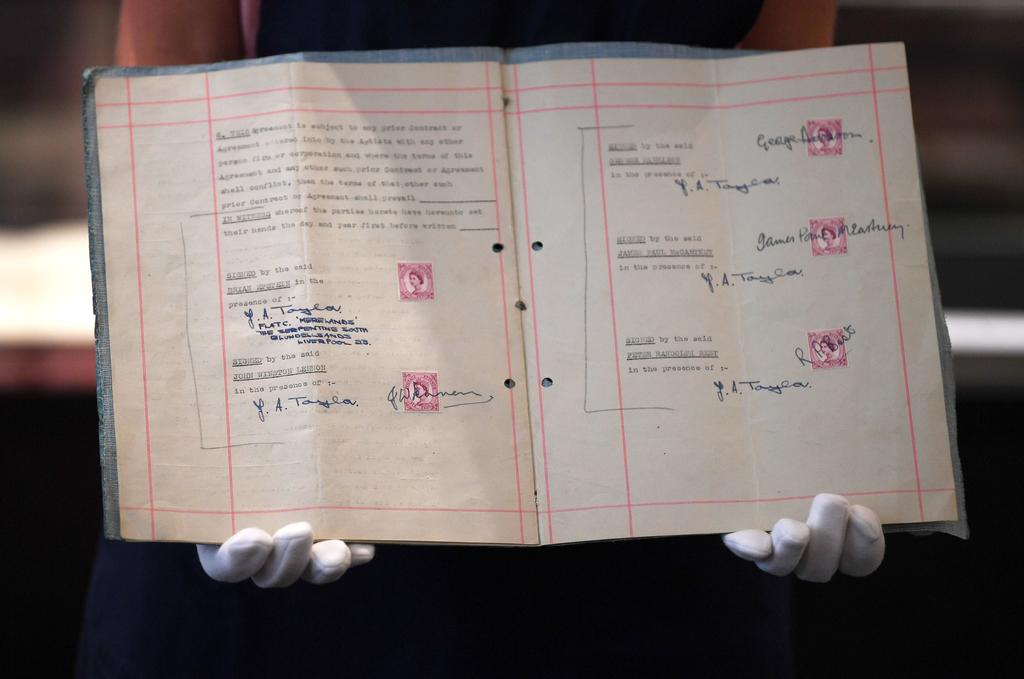 6. THIS Agreement is subject to any prior Contract or
Agreement entered into by the Artists with any other
person firm or corporation and where the terms of this
Agreement and any other such prior Contract or Agreement
shall conflict, then the terms of that other such
prior Contract or Agreement shall prevail
IN WITNESS whereof the parties hereto have hereunto set
their hands the day and year first before written
SIGNED by the said
BRIAN EPSTEIN in the
presence of :-
J. A. Tayla.
FLAT C. 'MERELANDS'
THE SERPENTINE SOUTH
BLUNDELLSANDS
LIVERPOOL 23.
SIGNED by the said
JOHN WINSTON LENNON
in the presence of :-
J. A. Tayla.
SIGNED by the said
GEORGE HARRISON
in the presence of :-
J. A. Tayla.
George Harrison.
SIGNED by the said
JAMES PAUL McCARTNEY
in the presence of :-
J. A. Tayla.
James Paul McCartney.
SIGNED by the said
PETER RANDOLPH BEST
in the presence of :-
J. A. Tayla.